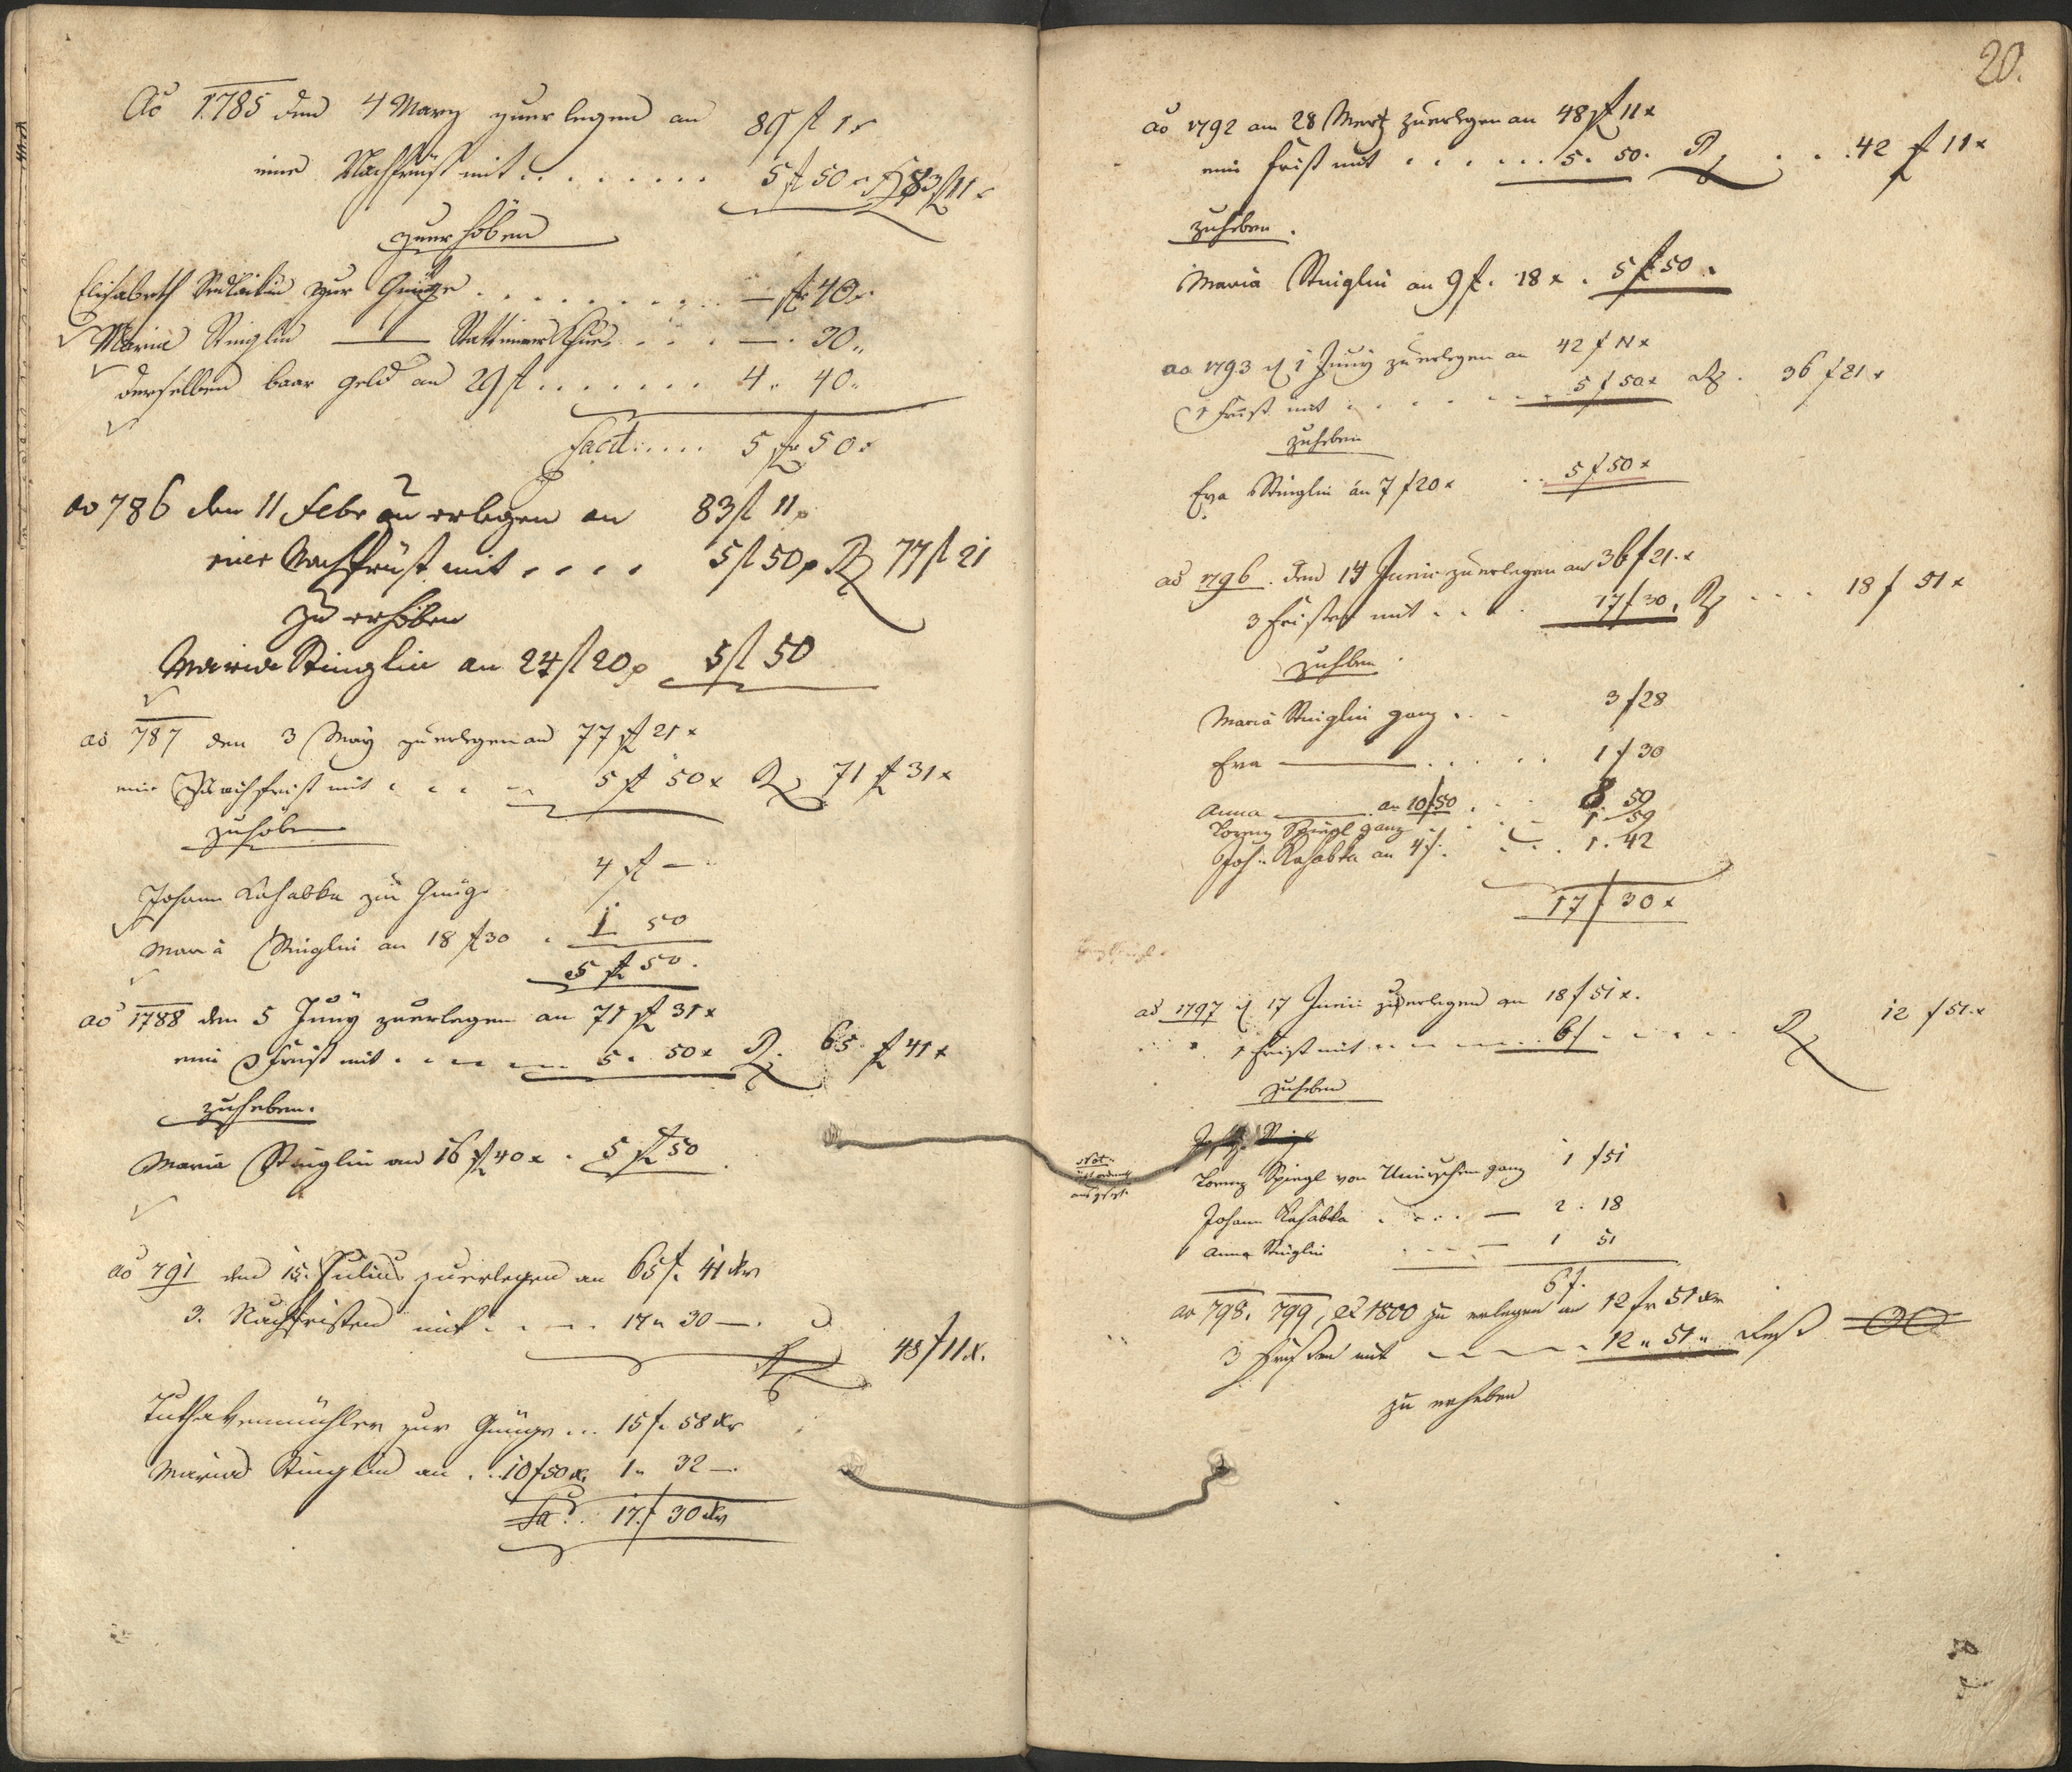 Ao 1785 den 4 Marz zuerlegen an 89 fl 1 x
eine Nachfrist mit . . . . . . . . 5 fl 50 x R 83 fl 11 x
zuerhöben
Elisabeth zur Gnüge . . . . . . . . — fl 40 x
Maria Stinglin —— . . . — . 30 „
derselben baar geld an 29 fl . . . . . . . 4 „ 40 „
Facit . . . . . 5 fl 50 x
ao 786 den 11 Febr zu erlegen an 83 fl 11 x
eine Nachfrist mit . . . . 5 fl 50 x R 77 fl 21
zu erhöben
Maria Stinglin an 24 fl 20 x 5 fl 50
ao 787 den 3 May zuerlegen an 77 fl 21 x
eine Nachfrist mit . . . 5 fl 50 x R 71 fl 31 x
zuhoben
Johann Kahabka zu Gnüge 4 fl —
Maria Stinglin an 18 fl 30 . 1 50
5 fl 50 .
ao 1788 den 5 Juny zuerlegen an 71 fl 31 x
eine Frist mit . . . . 5 . 50 x R. 65 fl 41 x
zuheben.
Maria Stinglin an 16 fl 40 x . 5 fl 50
ao 791 den 15. Julius zuerlegen an 65 f. 41 xr
3. Nachfristen mit . . — . 17 „ 30 — .
R 48 f 11 x.
zur Gnüge . . . 15 f. 58 xr
Maria Stinglin an . . 10 f 50 x. 1 „ 32 — .
Sa. 17 f 30 xr
20.
ao 1792 am 28 Mertz zuerlegen an 48 fl 11 x
eine Frist mit . . . . . . . 5 . 50 . R . . . 42 f 11 x
zuheben .
Maria Stinglin an 9 f. 18 x . 5 f 50 .
ao 1793 d 1 Juny zuerlegen an 42 f 11 x
1 Frist mit . . . . . . 5 f 50 x R . 36 f 21 x
zuheben
Eva Stinglin an 7 f 20 x . . 5 f 50 x
ao 1796 . den 14 Junii zuerlegen an 36 f 21 . x
3 Fristen mit . . . 17 f 30 . R . . . 18 f 51 x
zuheben .
Maria Stinglin ganz . . 3 f 28
Eva —— . . . . 1 f 30
Anna —— an 10 f 50 . . . 8 . 50
Lorenz Spiegl ganz . . . 1 . 59
Joh: Kahabka an 4 f. . . . 1 . 42
17 f 30 x
ao 1797 d 17 Junii zuerlegen an 18 f 51 x.
1 Frist mit . . — — . . 6 f . — — . . R 12 f 51 . x
zuheben
Lorenz Spiegl von ganz 1 f 51
Johann Kahabka . . . . — 2 . 18
Anna Stinglin . . . — 1 51
6 f.
ao 798. 799, et 1800 zu erlegen an 12 fr 51 xr
3 Fristen mit — — — . . 12 „ 51 „ Rest 00
zu erheben